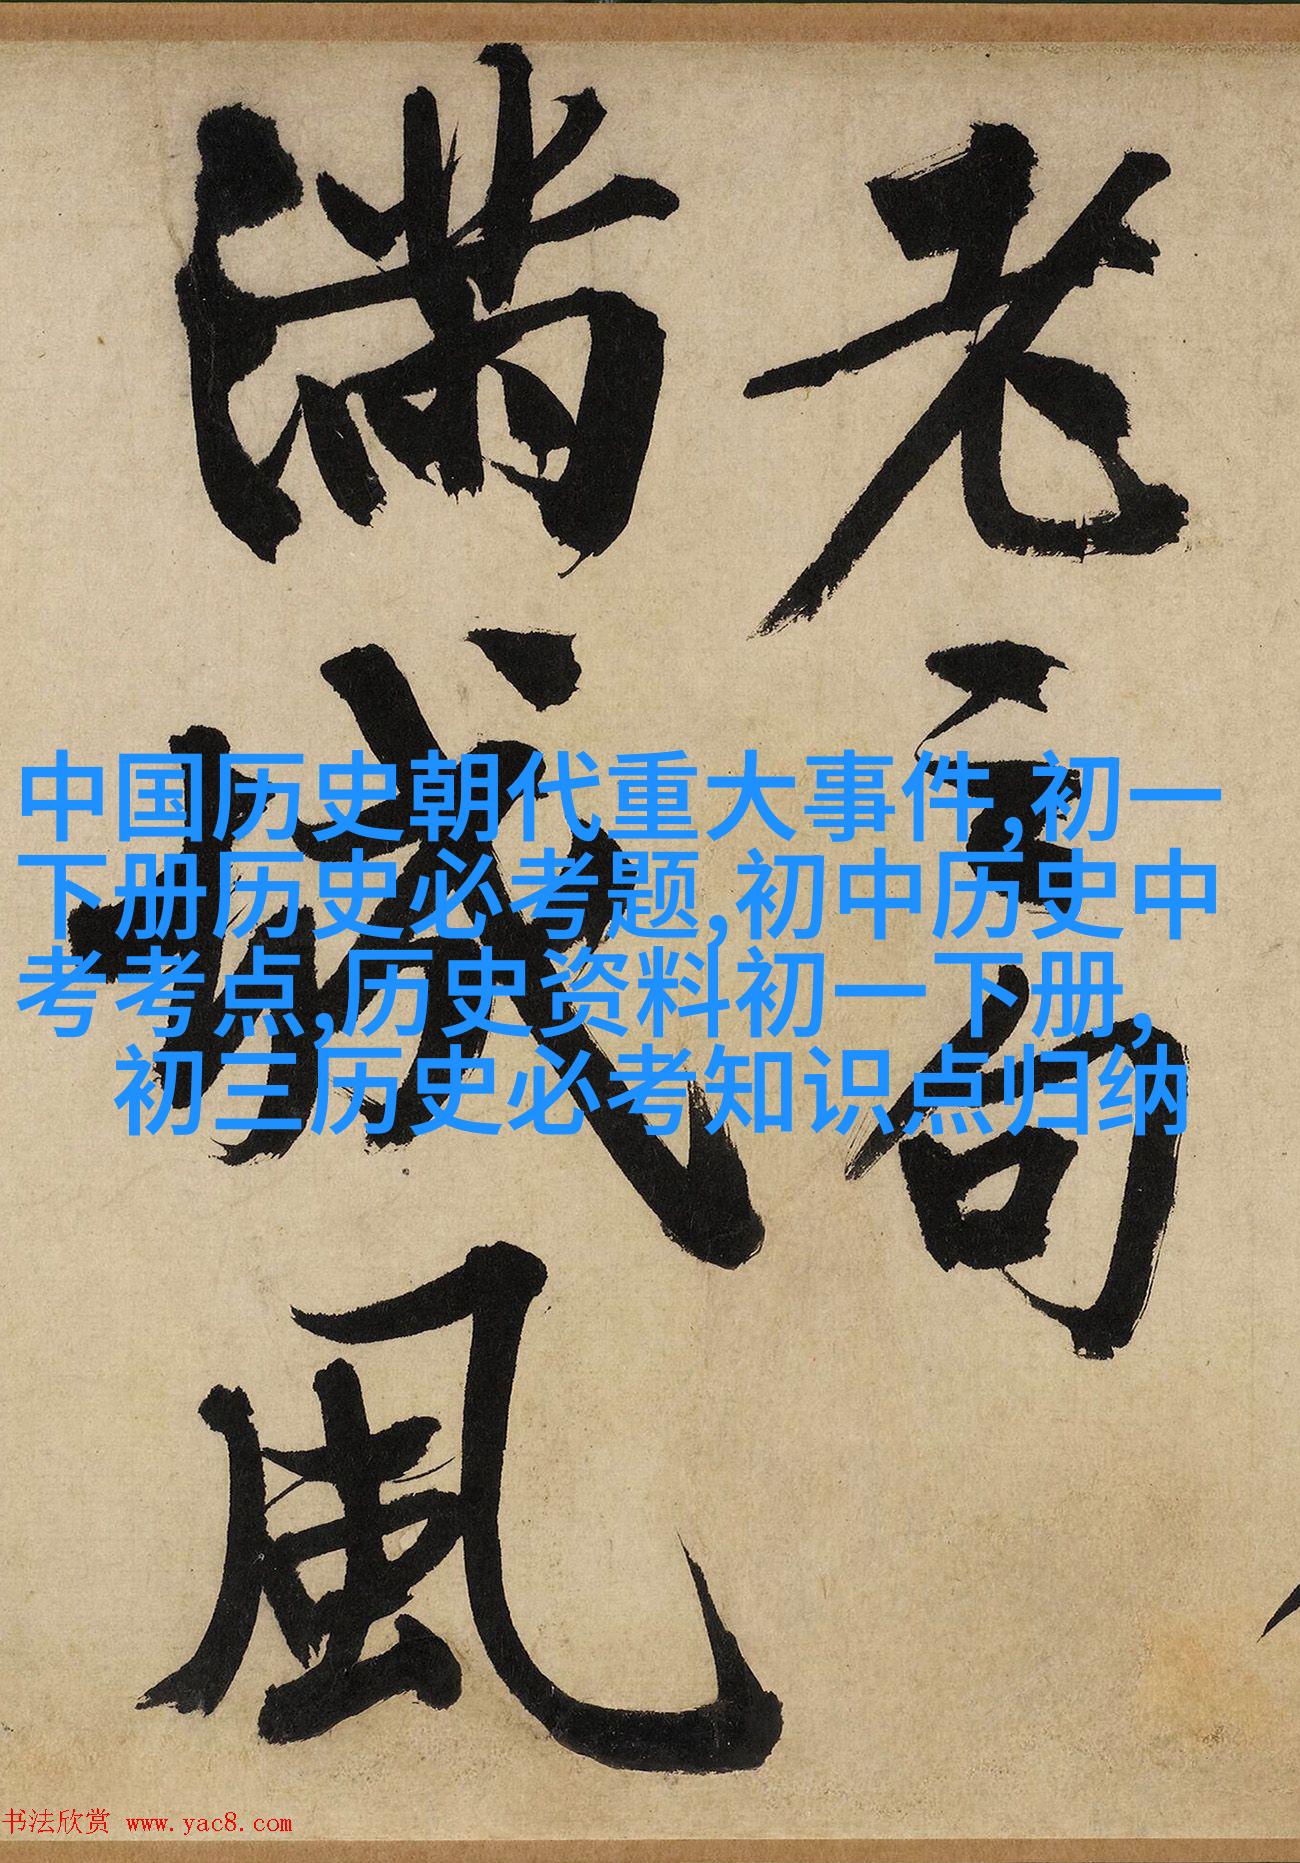 老言句
滿城風
中国历史朝代重大事件,初一
下册历史必考题,初中历史中
考考点,历史资料初一下册,
初三历史必考知识点归纳
书法欣赏 www.yac8.com